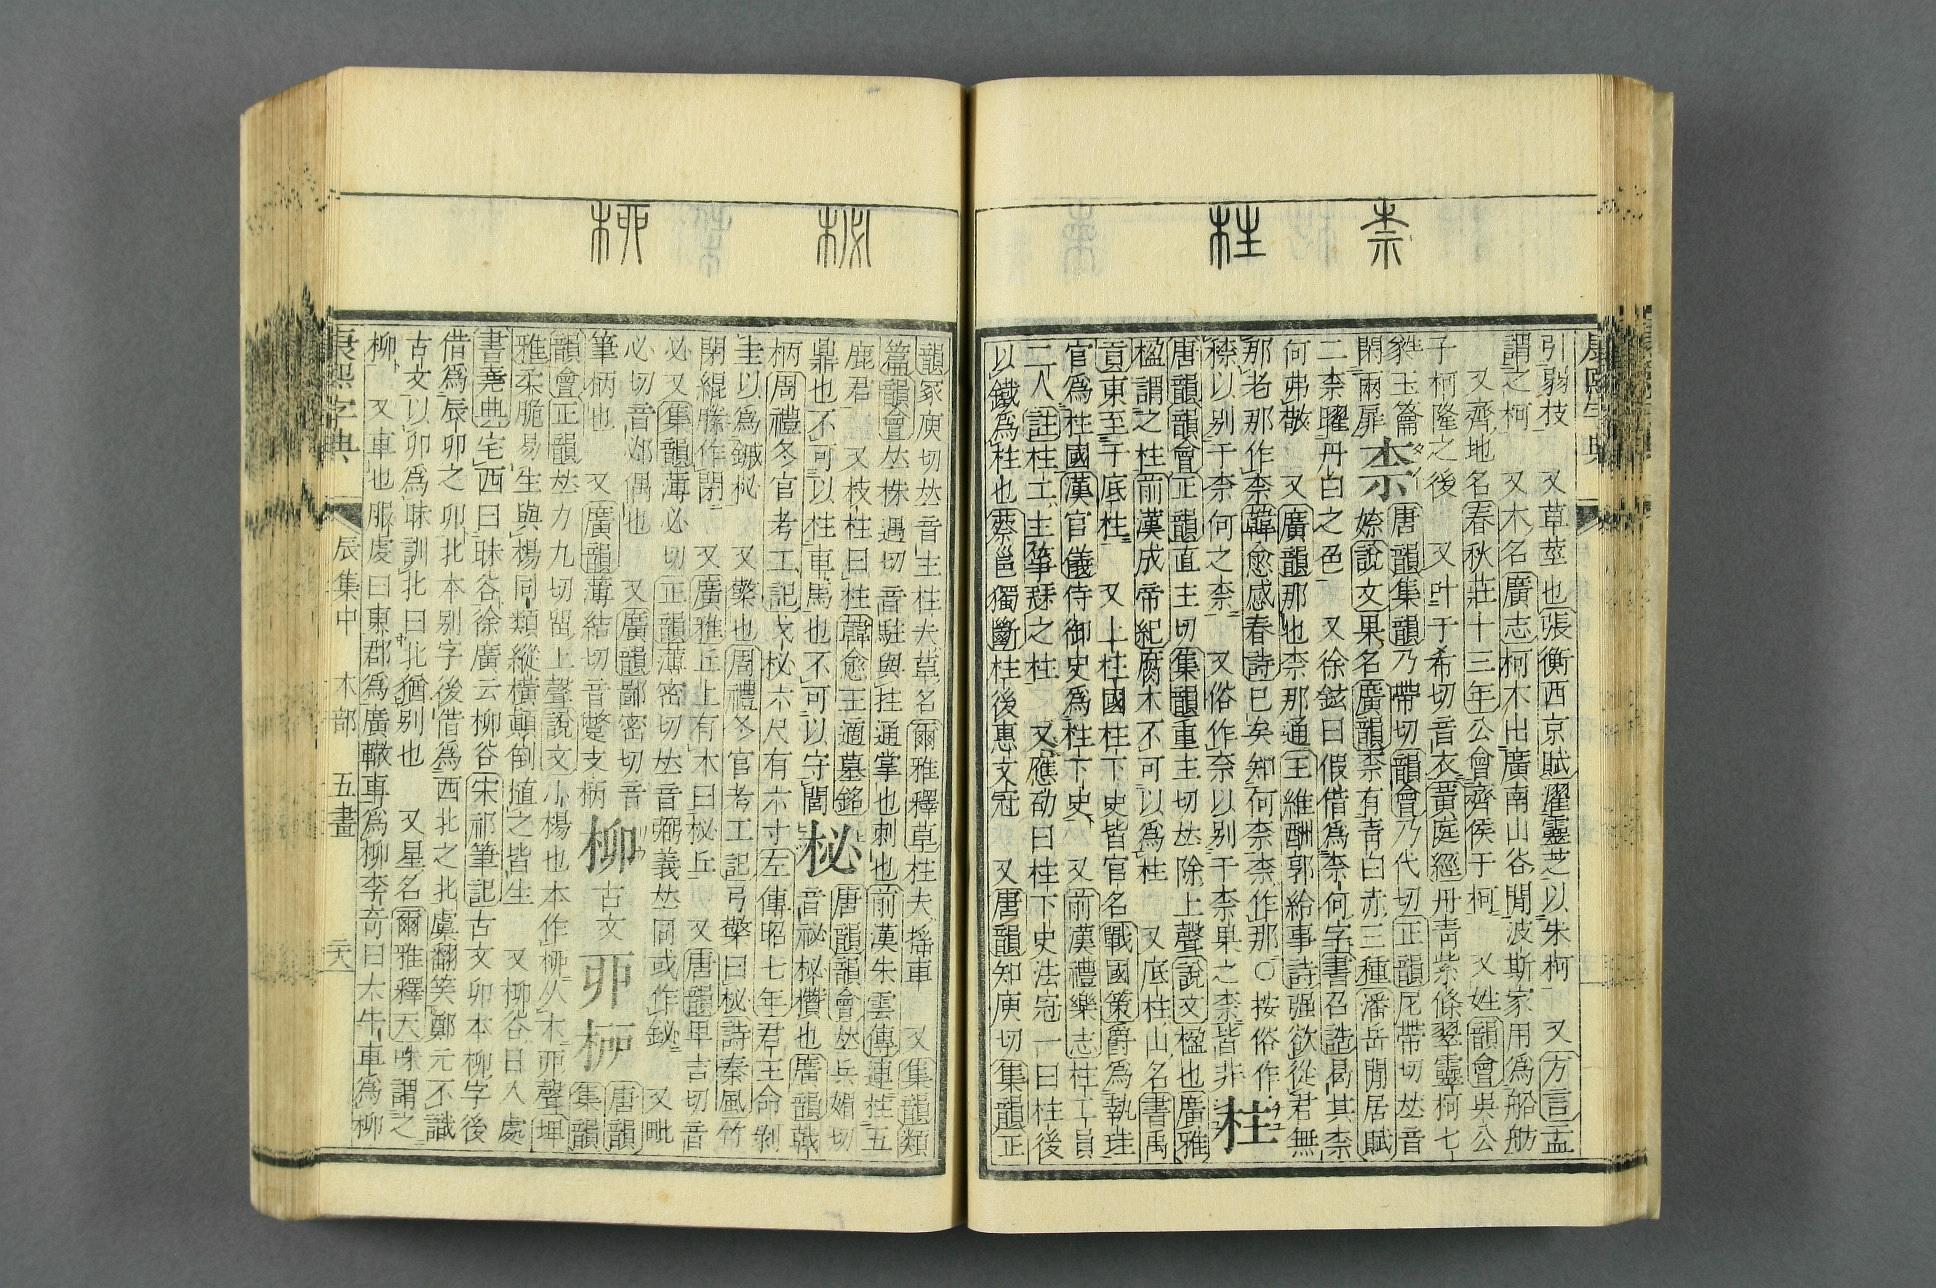 柰 柱
引弱枝 又草莖也張衡西京賦濯靈芝以朱柯 又方言盂
謂之柯 又木名廣志柯木出廣南山谷閒波斯家用爲船舫
又齊地名春秋莊十三年公會齊侯于柯 又姓韻會吳公
子柯隆之後 又叶于希切音衣黃庭經丹靑紫條翠靈柯七
蕤玉籥閉兩扉
柰 唐韻集韻乃帶切韻會乃代切正韻尼帶切𠀤音
㮈說文果名廣韻柰有靑白赤三種潘岳閒居賦
二柰曜丹白之色 又徐鉉曰假借爲柰何字書召誥曷其柰
何弗敬 又廣韻那也柰那通王維酬郭給事詩强欲從君無
那老那作柰韓愈感春詩已矣知何柰柰作那○按俗作
㮈以別于柰何之柰 又俗作奈以別于柰果之柰皆非
柱
唐韻韻會正韻直主切集韻重主切𠀤除上聲說文楹也廣雅
楹謂之柱前漢成帝紀腐木不可以爲柱 又底柱山名書禹
貢東至于底柱 又上柱國柱下史皆官名戰國策爵爲執珪
官爲柱國漢官儀侍御史爲柱下史 又前漢禮樂志柱工員
二人註柱工主箏瑟之柱 又應劭曰柱下史法冠一曰柱後
以鐵爲柱也蔡邕獨斷柱後惠文冠 又唐韻知庾切集韻正
柲 柳
韻冢庾切𠀤音主柱夫草名爾雅釋草柱夫搖車 又集韻類
篇韻會𠀤株遇切音駐與拄通掌也刺也前漢朱雲傳連拄五
鹿君 又枝柱曰柱韓愈王適墓銘
鼎也不可以柱車馬也不可以守閭
柲 唐韻韻會𠀤兵媚切
音祕柲欑也廣韻戟
柄周禮冬官考工記戈柲六尺有六寸左傳昭七年君王命剝
圭以爲鏚柲 又檠也周禮冬官考工記弓檠曰柲詩秦風竹
閉緄縢作閉 又廣雅丘上有木曰柲丘 又唐韻畢吉切音
必又集韻薄必切正韻薄密切𠀤音弼義𠀤同或作䤉 又毗
必切音邲偶也 又廣韻鄙密切音
筆柄也 又廣韻蒲結切音蹩支柄
柳 古文 丣 桺 唐韻集韻
韻會正韻𠀤力九切留上聲說文小楊也本作桺从木丣聲埤
雅柔脆易生與楊同類縱橫顚倒植之皆生 又柳谷日入處
書堯典宅西曰昧谷徐廣云柳谷宋祁筆記古文卯本柳字後
借爲辰卯之卯北本别字後借爲西北之北虞翻笑鄭元不識
古文以卯爲昧訓北曰北猶别也 又星名爾雅釋天咮謂之
柳 又車也服虔曰東郡爲廣轍車爲柳李奇曰大牛車爲柳
康熙字典 辰集中 木部 五畫